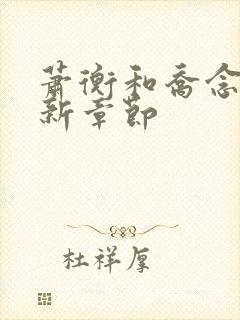 萧衡和乔念
新章节
杜祥厚